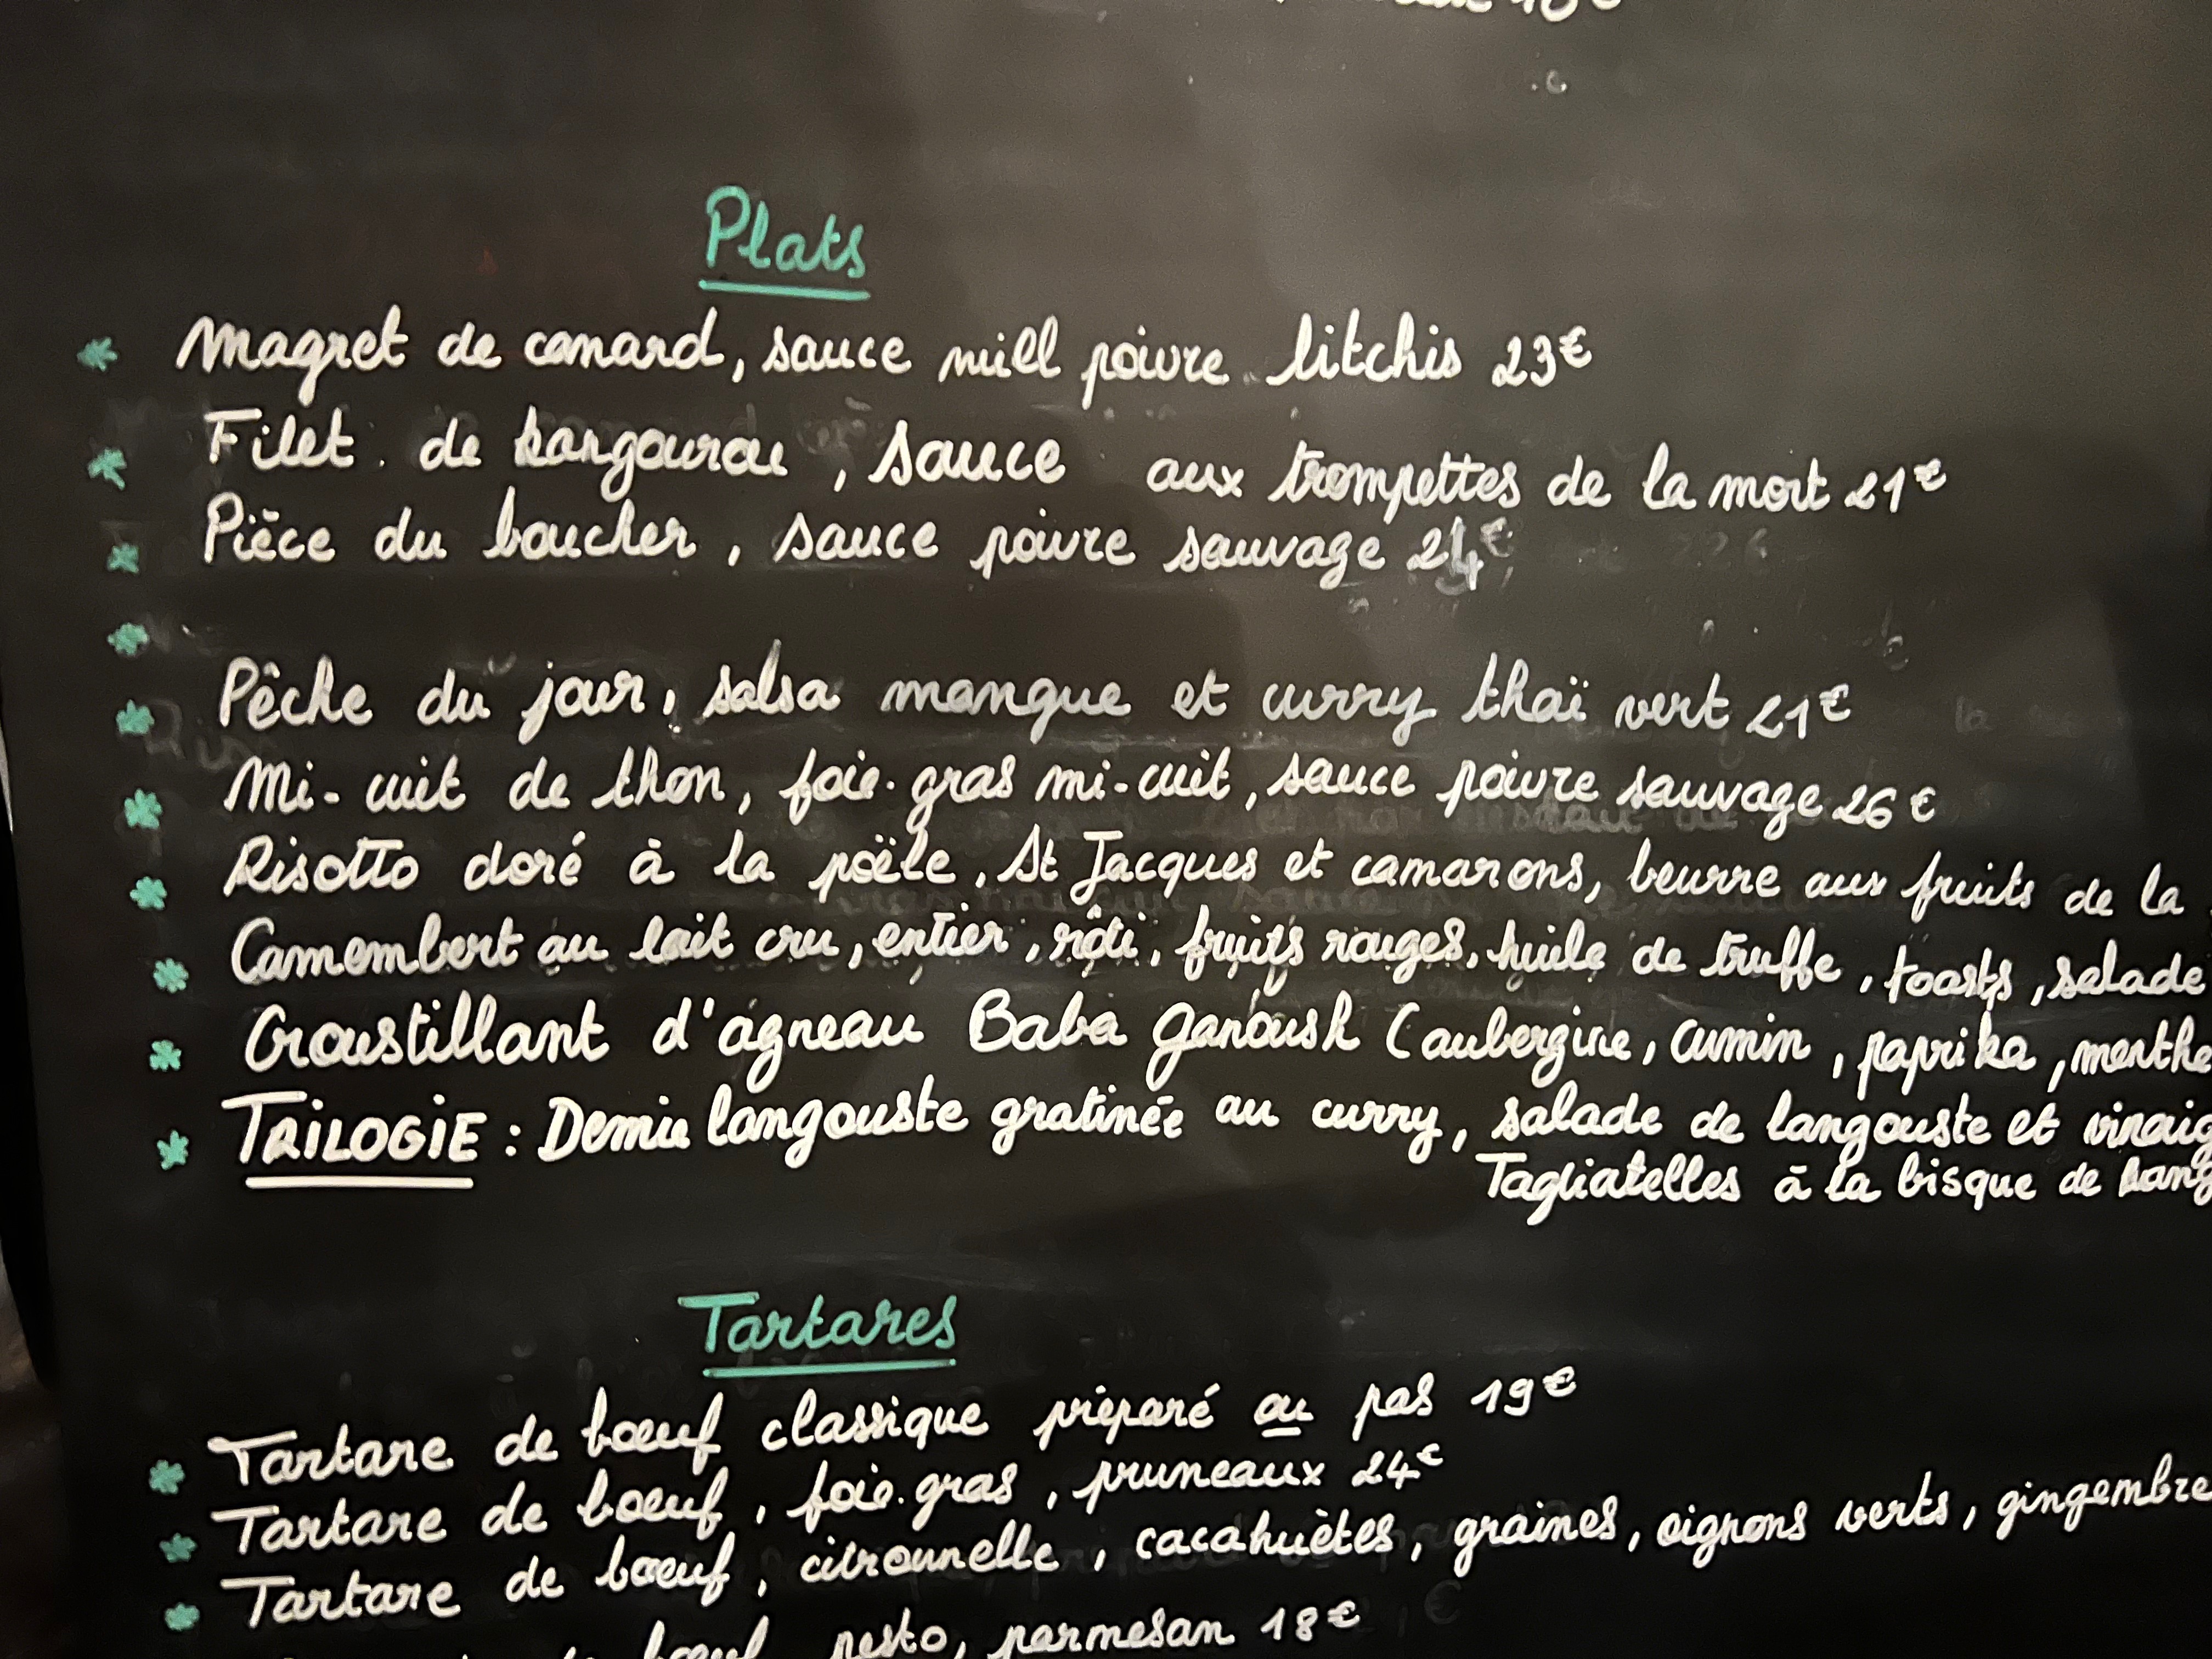 Plats
Magret de canard, sauce miell poivre litchis 23€
Filet de kangourou, sauce aux trompettes de la mort 21€
Pièce du boucher, sauce poivre sauvage 24€
Pêche du jour, salsa mangue et curry thaï vert 21€
Mi-cuit de thon, foie-gras mi-cuit, sauce poivre sauvage 26€
Risotto doré à la poële, St Jacques et camarons, beurre aux fruits de la
Camembert au lait cru, entier, rôti, fruits rouges, huile de truffe, toasts, salade
Croustillant d'agneau Baba Ganoush (aubergine, cumin, paprika, menthe
TRILOGIE : Demie langouste gratinée au curry, salade de langouste et vinaig
Tagliatelles à la bisque de lang
Tartares
Tartare de bœuf classique préparé ou pas 19€
Tartare de bœuf, foie-gras, pruneaux 24€
Tartare de bœuf, citronnelle, cacahuètes, graines, oignons verts, gingembre
bœuf pesto, parmesan 18€